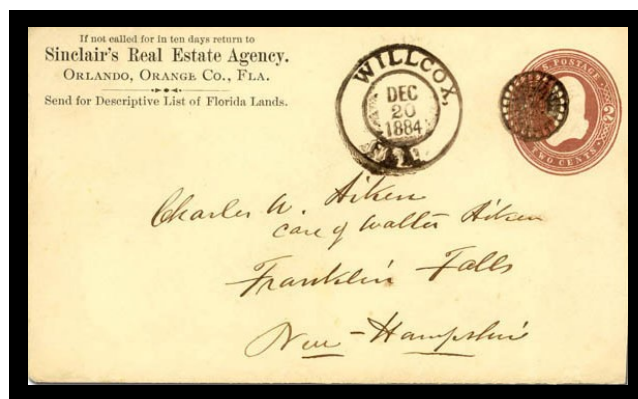 If not called for in ten days return to
Sinclair's Real Estate Agency.
ORLANDO, ORANGE CO., FLA.
Send for Descriptive List of Florida Lands.
WILLCOX,
DEC
20
1884
U.S. POSTAGE
2
TWO CENTS
Charles W. Aiken
care of Walter Aiken
Franklin Falls
New-Hampshire